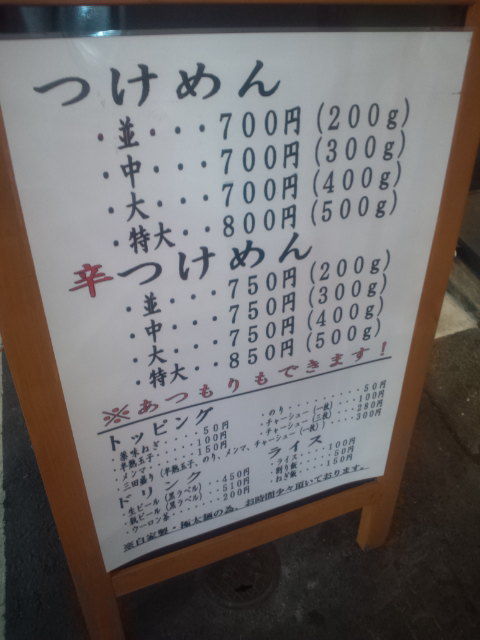 つけめん
・並・・・700円(200g)
・中・・・700円(300g)
・大・・・700円(400g)
・特大・・800円(500g)
辛つけめん
・並・・・750円(200g)
・中・・・750円(300g)
・大・・・750円(400g)
・特大・・850円(500g)
※あつもりもできます!
トッピング
・薬味ねぎ・・・・・50円
・半熟玉子・・・・・100円
・メンマ・・・・・・150円
・三田盛り(半熟玉子、のり、メンマ、チャーシュー(一枚))・・・・300円
・のり・・・・・・・・・・50円
・チャーシュー(一枚)・・・・100円
・チャーシュー(三枚)・・・・280円
ドリンク
・生ビール(黒ラベル)・・・450円
・瓶ビール(黒ラベル)・・・510円
・ウーロン茶・・・・・・200円
ライス
・ライス・・・・100円
・割り飯・・・・50円
・ねぎ飯・・・・150円
※自家製・極太麺の為、お時間少々頂いております。